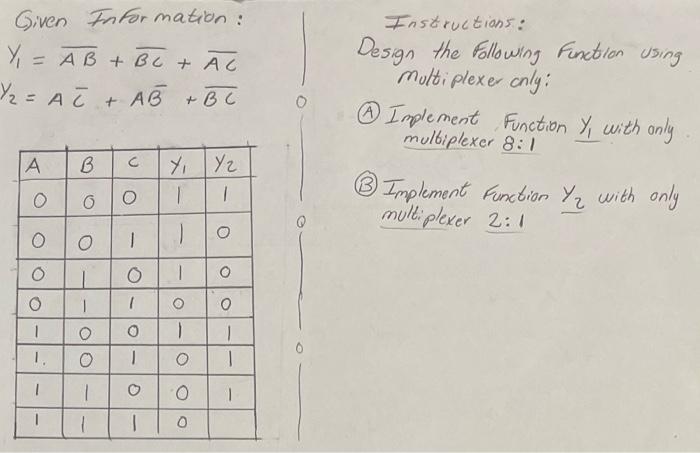 Given Information :
Y₁ = A̅B̅ + B̅C̅ + A̅C̅
Y₂ = A C̅ + A B̅ + B̅ C̅
A B C Y₁ Y₂
0 0 0 1 1
0 0 1 1 0
0 1 0 1 0
0 1 1 0 0
1 0 0 1 1
1. 0 1 0 1
1 1 0 0 1
1 1 1 0
Instructions :
Design the following Function using
multiplexer only:
Ⓐ Implement Function Y₁ with only
multiplexer 8:1
Ⓑ Implement Function Y₂ with only
multiplexer 2:1